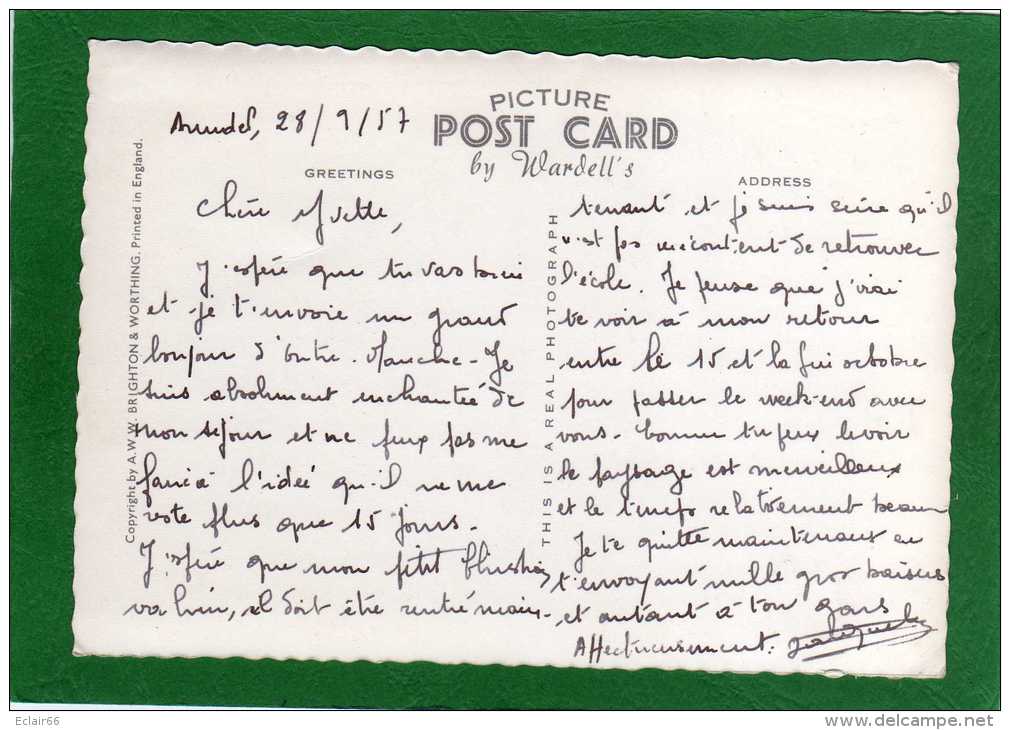 Arundel, 28/9/57
PICTURE
POST CARD
by Wardell's
GREETINGS
ADDRESS
Copyright by A.W.W. BRIGHTON & WORTHING. Printed in England.
THIS IS A REAL PHOTOGRAPH
Chère Yvette,
J'espère que tu vas bien
et je t'envoie un grand
bonjour d'Outre-Manche - Je
suis absolument enchantée de
mon séjour et ne peux pas me
faire à l'idée qu'il ne me
reste plus que 15 jours.
J'espère que mon petit
va bien, il doit être rentré main-
tenant et je suis sûre qu'il
n'est pas mécontent de retrouver
l'école. Je pense que j'irai
te voir à mon retour
entre le 15 et la fin octobre
pour passer le week-end avec
vous. Comme tu peux le voir
le paysage est merveilleux
et le temps relativement beau
Je te quitte maintenant en
t'envoyant mille gros baisers
et autant à ton gars
Affectueusement:
Eclair66
delcampe.net